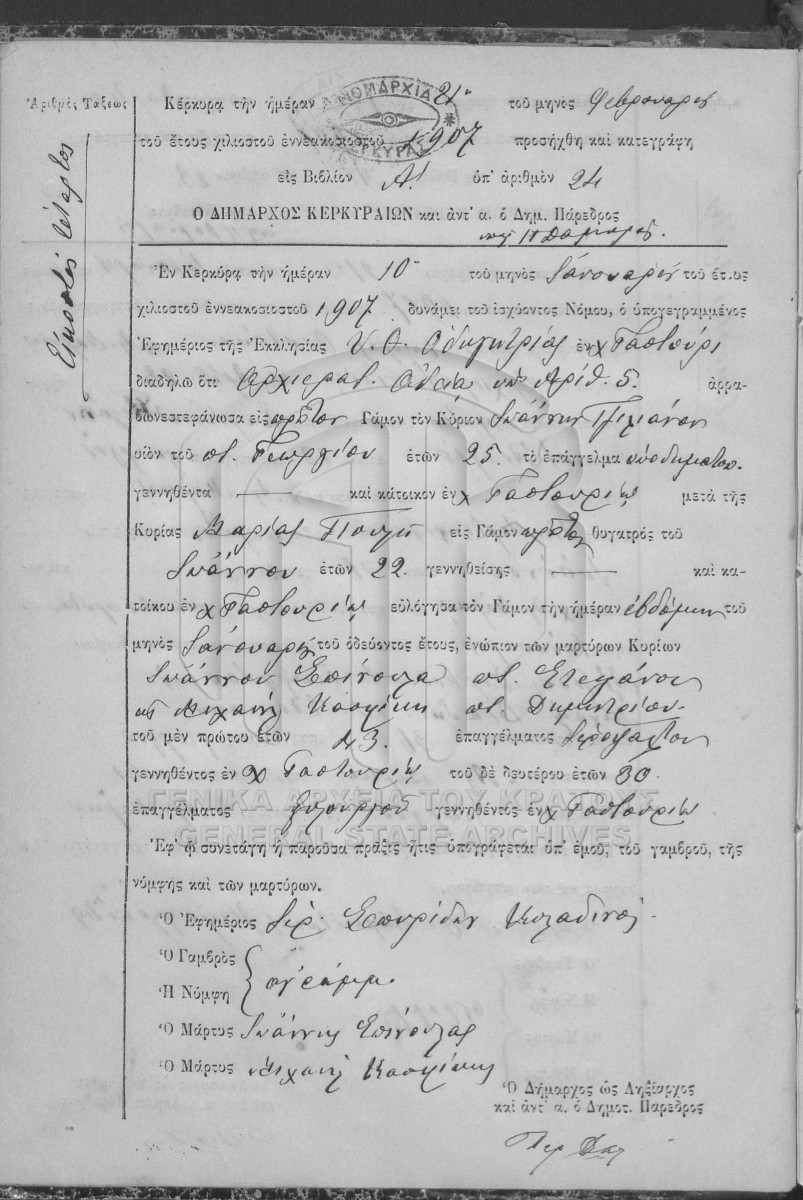 Ἀριθμὸς Τάξεως
Εἰκοστὸς τέταρτος
ΝΟΜΑΡΧΙΑ
ΚΕΡΚΥΡΑΣ
Κέρκυρα τὴν ἡμέραν 21η τοῦ μηνὸς Φεβρουαρίου
τοῦ ἔτους χιλιοστοῦ ἐννεακοσιοστοῦ 1907 προσήχθη καὶ κατεγράφη
εἰς Βιβλίον Α' ὑπ' ἀριθμὸν 24
Ὁ ΔΗΜΑΡΧΟΣ ΚΕΡΚΥΡΑΙΩΝ καὶ ἀντ' α. ὁ Δημ. Πάρεδρος
Ἐν Κερκύρᾳ τὴν ἡμέραν 10η τοῦ μηνὸς Ἰανουαρίου τοῦ ἔτους
χιλιοστοῦ ἐννεακοσιοστοῦ 1907 δυνάμει τοῦ ἰσχύοντος Νόμου, ὁ ὑπογεγραμμένος
Ἐφημέριος τῆς Ἐκκλησίας Υ. Θ. Ὁδηγητρίας ἐν χ Γαστούρι
διαδηλῶ ὅτι Ἀρχιερατ. Ἀδείᾳ ὑπ' Ἀριθ. 5. ἀρρα-
βωνεστεφάνωσα εἰς πρῶτον Γάμον τὸν Κύριον Ἰωάννην
υἱὸν τοῦ ποτ. Γεωργίου ἐτῶν 25. τὸ ἐπάγγελμα ὑποδηματοπ.
γεννηθέντα — καὶ κάτοικον ἐν χ Γαστουρίῳ μετὰ τῆς
Κυρίας Μαρίας Πουλῆ εἰς Γάμον πρῶτον θυγατρὸς τοῦ
Ἰωάννου ἐτῶν 22. γεννηθείσης — καὶ κα-
τοίκου ἐν χ Γαστουρίῳ εὐλόγησα τὸν Γάμον τὴν ἡμέραν ἑβδόμην τοῦ
μηνὸς Ἰανουαρίου τοῦ ὁδεύοντος ἔτους, ἐνώπιον τῶν μαρτύρων Κυρίων
Ἰωάννου Σπίνουλα ποτ. Στεφάνου
καὶ Μιχαὴλ Κασφίκη ποτ. Δημητρίου
τοῦ μὲν πρώτου ἐτῶν 43. ἐπαγγέλματος Ἱεροψάλτου
γεννηθέντος ἐν χ Γαστουρίῳ τοῦ δὲ δευτέρου ἐτῶν 30.
ἐπαγγέλματος Ξυλουργοῦ γεννηθέντος ἐν χ Γαστουρίῳ
ΓΕΝΙΚΑ ΑΡΧΕΙΑ ΤΟΥ ΚΡΑΤΟΥΣ
GENERAL STATE ARCHIVES
Ἐφ' ᾧ συνετάγη ἡ παροῦσα πρᾶξις ἥτις ὑπογράφεται ὑπ' ἐμοῦ, τοῦ γαμβροῦ, τῆς
νύμφης καὶ τῶν μαρτύρων.
Ὁ Ἐφημέριος Ἱερ. Σπυρίδων
Ὁ Γαμβρὸς
ἀγράμμ.
Ἡ Νύμφη
Ὁ Μάρτυς Ἰωάννης Σπίνουλας
Ὁ Μάρτυς Μιχαὴλ Κασφίκης
Ὁ Δήμαρχος ὡς Ληξίαρχος
καὶ ἀντ' α. ὁ Δημοτ. Πάρεδρος